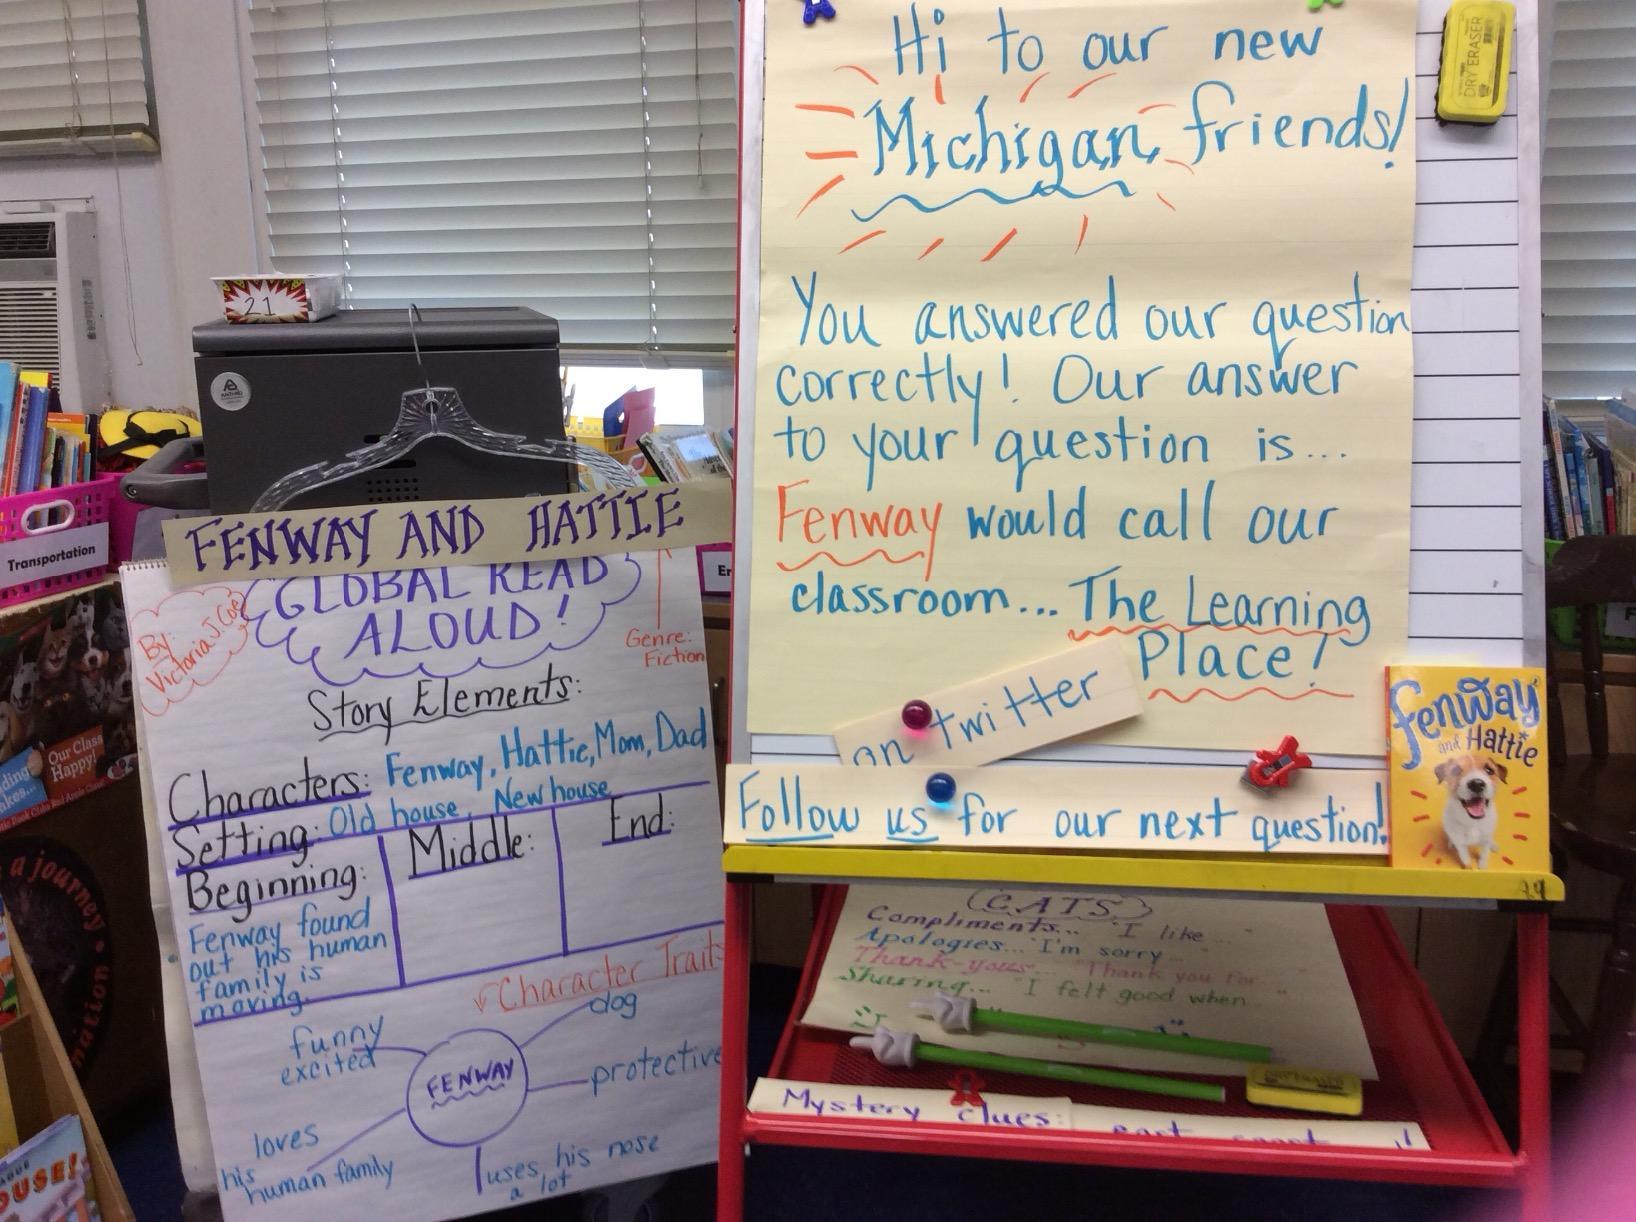 Hi to our new
Michigan friends!
You answered our question
correctly! Our answer
to your question is...
Fenway would call our
classroom... The Learning
Place!
on twitter
Follow us for our next question!
DRY ERASER
fenway
and Hattie
FENWAY AND HATTIE
GLOBAL READ
ALOUD!
By:
Victoria J. Coe
Genre:
Fiction
Story Elements:
Characters: Fenway, Hattie, Mom, Dad
Setting: Old house, New house
Beginning:
Fenway found
out his human
family is
moving.
Middle:
End:
Character Traits
FENWAY
funny
excited
dog
protective
loves
his
human family
uses his nose
a lot
21
Transportation
Our Class
Happy!
a journey
CATS
Compliments... "I like ..."
Apologies... "I'm sorry...
Thank-yous... "Thank you for..."
Sharing... "I felt good when..."
Mystery clues:
OUSE!